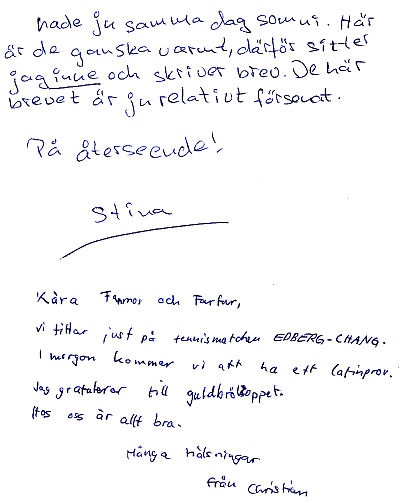 hade ju samma dag som ni. Här
är de ganska varmt, därför sitter
jag inne och skriver brev. De här
brevet är ju relativt försenat.
På återseende!
Stina
Kära Farmor och Farfar,
vi tittar just på tennismatchen EDBERG-CHANG.
I morgon kommer vi att ha ett latinprov.
Jag gratulerar till guldbröloppet.
Hos oss är allt bra.
Många Hälsningar
från Christian